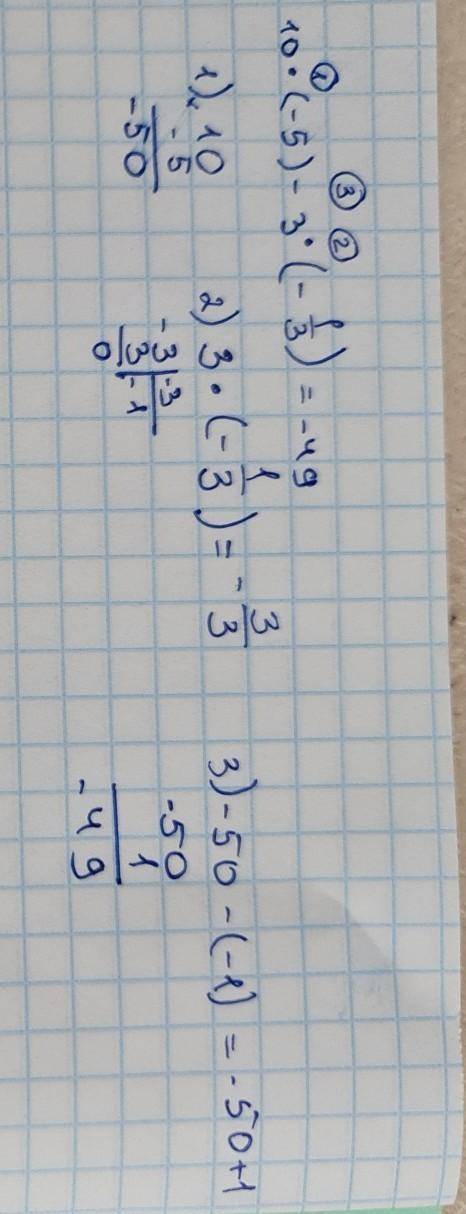 ① ③ ②
10 · (-5) - 3 · (- 1/3) = -49
1) 10
-5
-50
2) 3 · (- 1/3) = - 3/3
-3 | -3
3 | -1
0
3) -50 - (-1) = -50+1
-50
1
-49